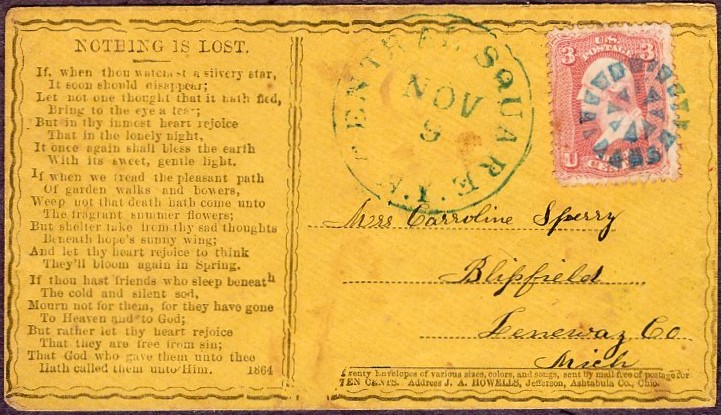 NOTHING IS LOST.
If, when thou watchest a silvery star,
It soon should disappear;
Let not one thought that it hath fled,
Bring to the eye a tear;
But in thy inmost heart rejoice
That in the lonely night,
It once again shall bless the earth
With its sweet, gentle light.
If when we tread the pleasant path
Of garden walks and bowers,
Weep not that death hath come unto
The fragrant summer flowers;
But shelter take from thy sad thoughts
Beneath hope's sunny wing;
And let thy heart rejoice to think
They'll bloom again in Spring.
If thou hast friends who sleep beneath
The cold and silent sod,
Mourn not for them, for they have gone
To Heaven and to God;
But rather let thy heart rejoice
That they are free from sin;
That God who gave them unto thee
Hath called them unto Him. 1864
CENTRAL SQUARE
NOV
3 U.S. 3
POSTAGE
U
CEN
Mrs Carroline Sperry
Blipfield
Lenewaz Co
Mich
Twenty Envelopes of various sizes, colors, and songs, sent by mail free of postage for
TEN CENTS. Address J. A. HOWELLS, Jefferson, Ashtabula Co., Ohio.